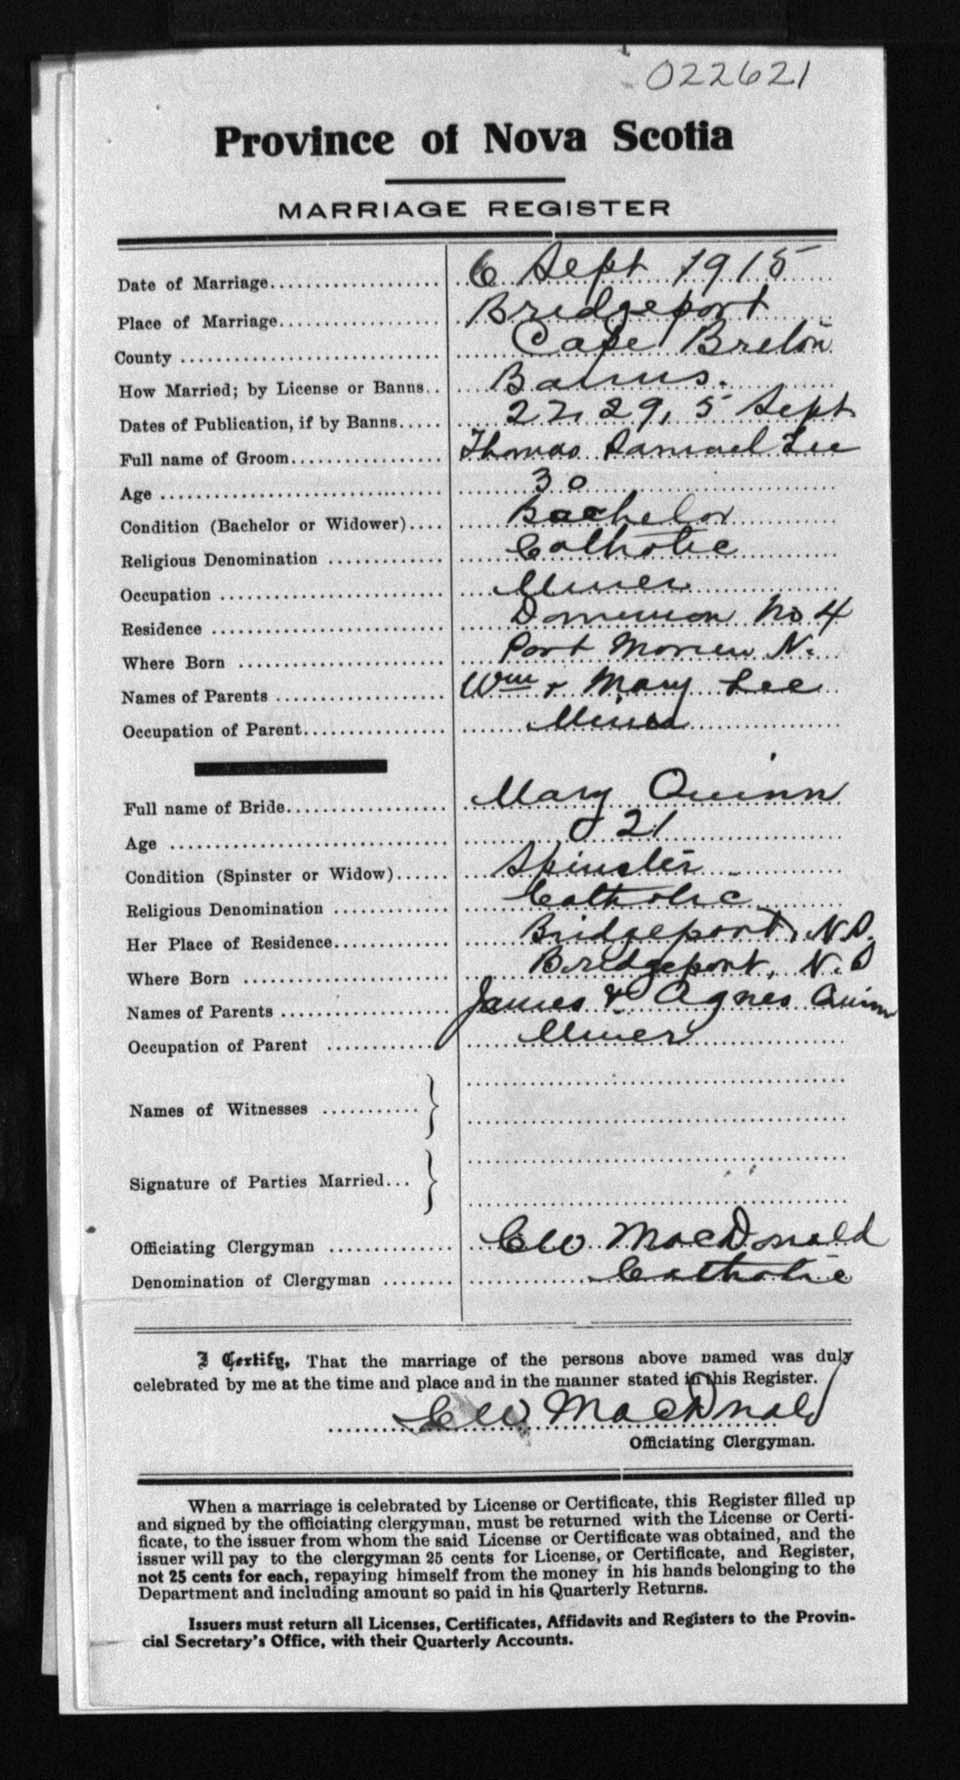 022621
Province of Nova Scotia
MARRIAGE REGISTER
Date of Marriage 6 Sept 1915
Place of Marriage Bridgeport
County Cape Breton
How Married; by License or Banns Banns.
Dates of Publication, if by Banns 22, 29, 5 Sept
Full name of Groom Thomas Samuel Lee
Age 30
Condition (Bachelor or Widower) Bachelor
Religious Denomination Catholic
Occupation Miner
Residence Dominion No 4
Where Born Port Morien N.
Names of Parents Wm & Mary Lee
Occupation of Parent Miner
Full name of Bride Mary Quinn
Age 21
Condition (Spinster or Widow) Spinster
Religious Denomination Catholic
Her Place of Residence Bridgeport, N.S.
Where Born Bridgeport, N.S
Names of Parents James & Agnes Quinn
Occupation of Parent Miner
Names of Witnesses
Signature of Parties Married
Officiating Clergyman CW MacDonald
Denomination of Clergyman Catholic
I Certify, That the marriage of the persons above named was duly
celebrated by me at the time and place and in the manner stated in this Register.
CW MacDonald
Officiating Clergyman.
When a marriage is celebrated by License or Certificate, this Register filled up
and signed by the officiating clergyman, must be returned with the License or Certi-
ficate, to the issuer from whom the said License or Certificate was obtained, and the
issuer will pay to the clergyman 25 cents for License, or Certificate, and Register,
not 25 cents for each, repaying himself from the money in his hands belonging to the
Department and including amount so paid in his Quarterly Returns.
Issuers must return all Licenses, Certificates, Affidavits and Registers to the Provin-
cial Secretary's Office, with their Quarterly Accounts.